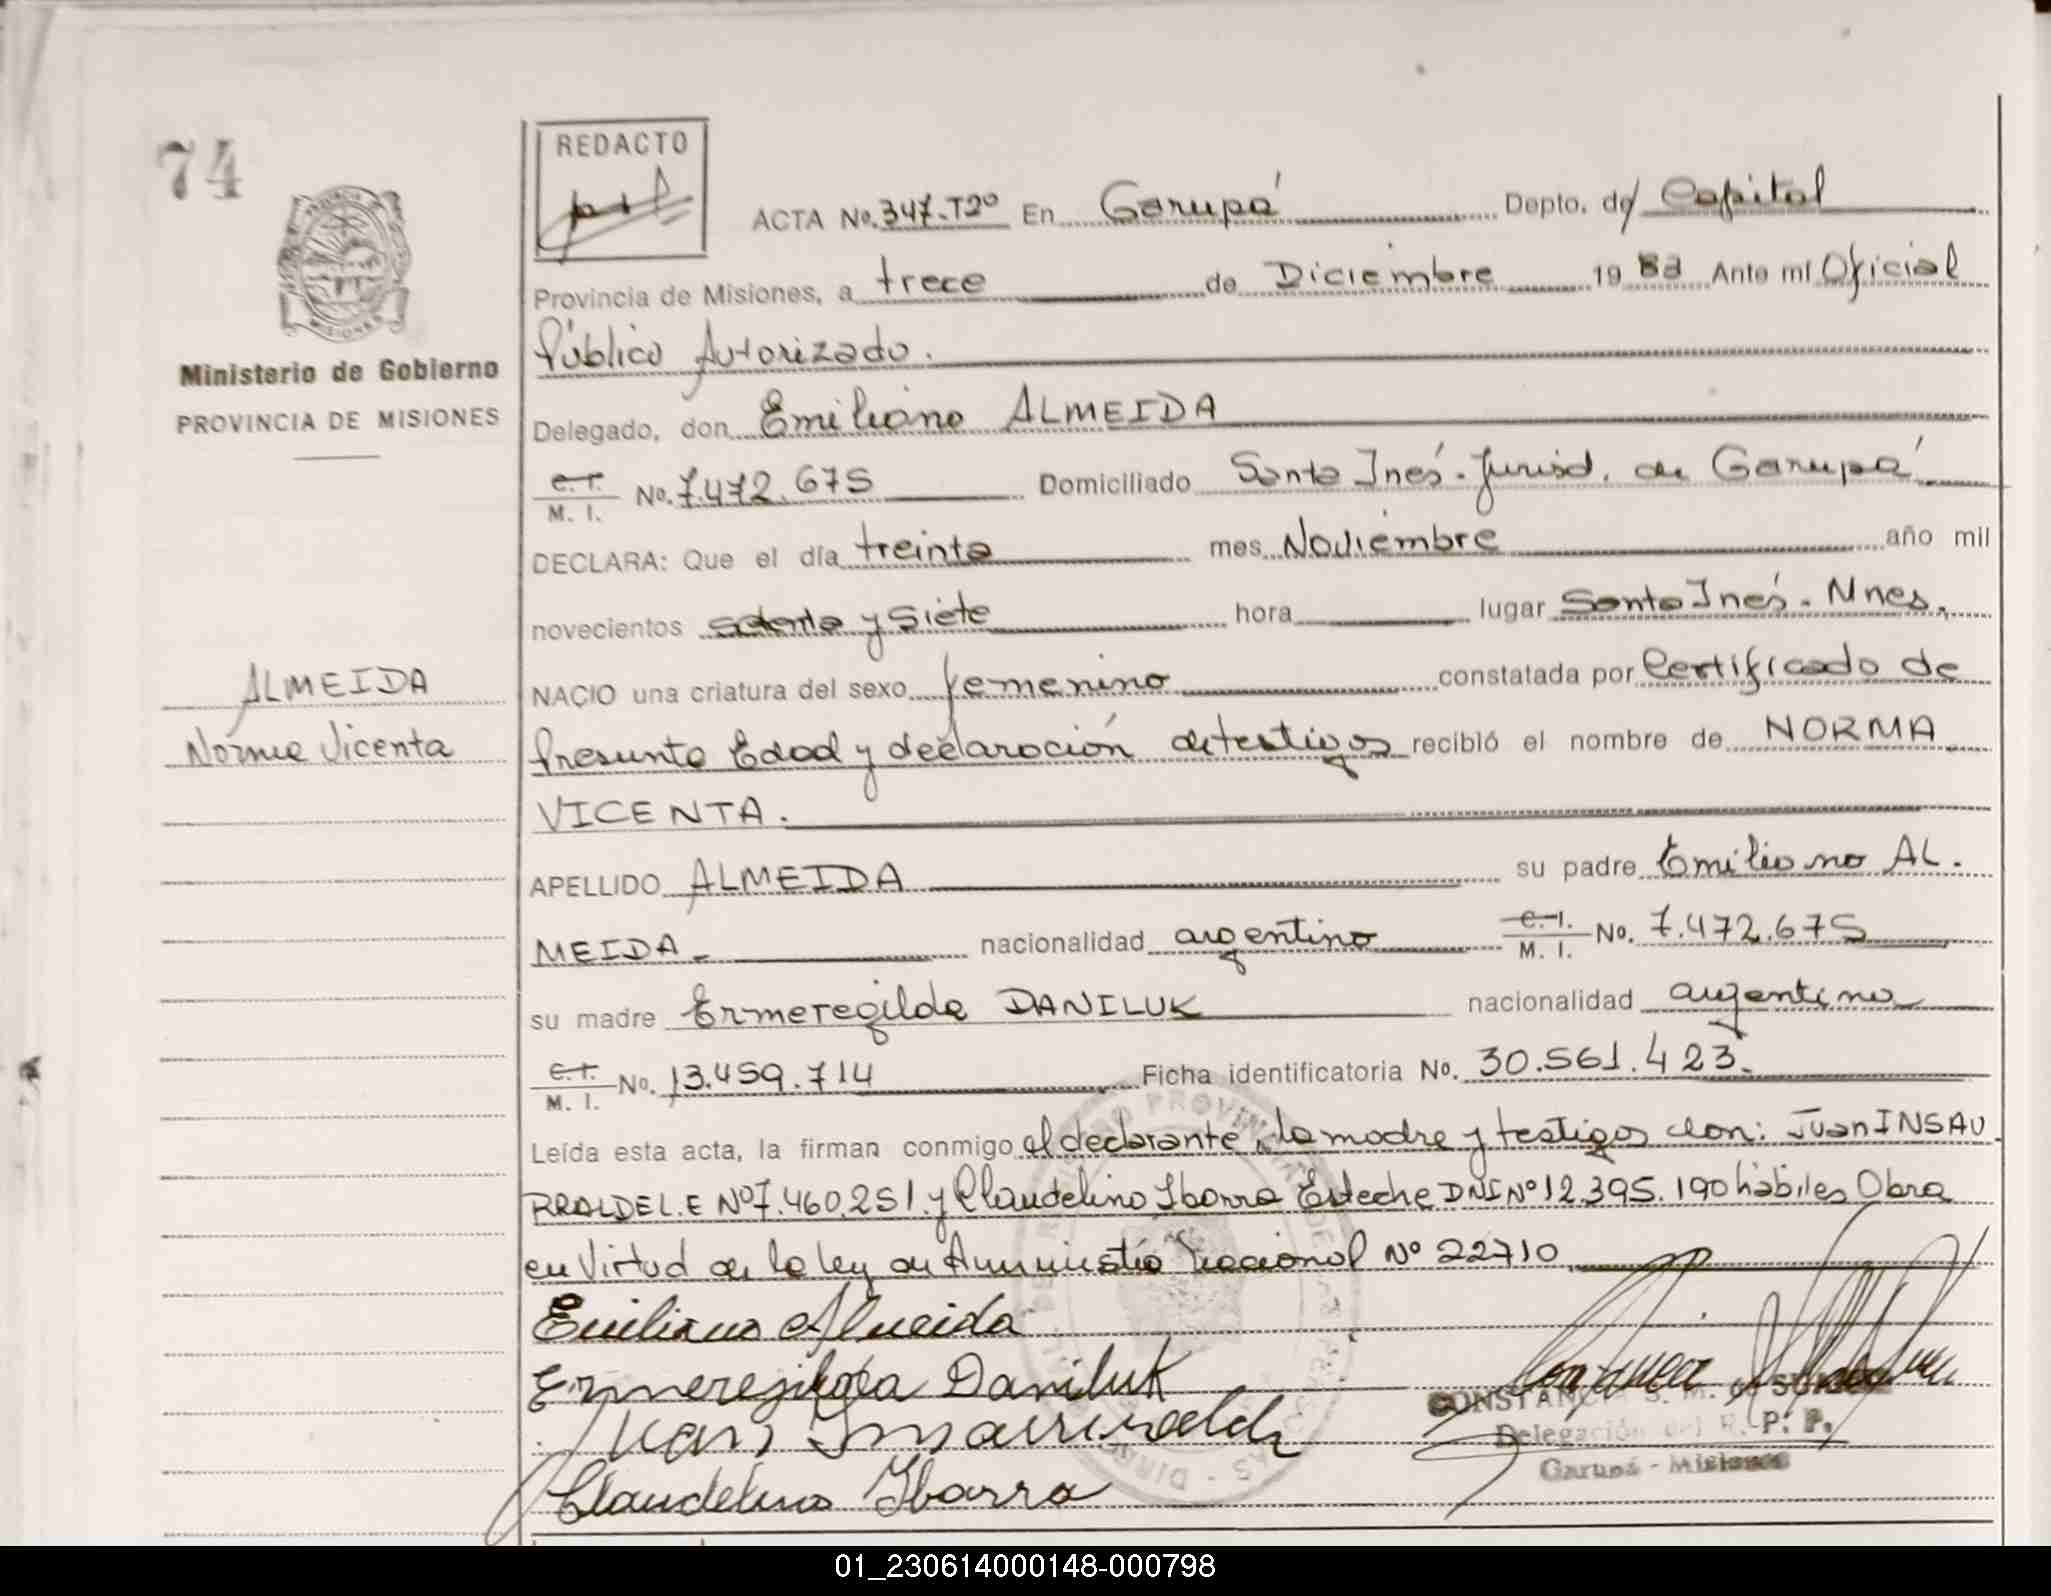 74
REDACTO
ACTA No. 347-T2º En Garupá Depto. de Capital
Provincia de Misiones, a trece de Diciembre 1983 Ante mí Oficial
Público Autorizado.
Ministerio de Gobierno
PROVINCIA DE MISIONES
Delegado, don Emiliano ALMEIDA
C. I. M. I. No. 7.472.675 Domiciliado Santa Inés - Jurisd. de Garupá
DECLARA: Que el día treinta mes Noviembre año mil
novecientos setenta y siete hora lugar Santa Inés - Mnes.
ALMEIDA
Norma Vicenta
NACIO una criatura del sexo femenino constatada por Certificado de
Presunta Edad y declaración de testigos recibió el nombre de NORMA
VICENTA.
APELLIDO ALMEIDA su padre Emiliano AL-
MEIDA nacionalidad argentino C. I. M. I. No. 7.472.675
su madre Ermeregilda DANILUK nacionalidad argentina
C. I. M. I. No. 13.459.714 Ficha identificatoria No. 30.561.423
Leída esta acta, la firman conmigo el declarante, la madre y testigos don: Juan INSAU
RRALDE L.E Nº 7.460.251 y Claudelino Ibarra Esteche DNI Nº 12.395.190 hábiles Obra
en Virtud de la ley de Amnistía Nacional Nº 22710
Emiliano Almeida
Ermeregilda Daniluk
Juan Insaurralde
Claudelino Ibarra
CONSTANCIA S. M. de
Delegación del R. P. P.
Garupá - Misiones
01_230614000148-000798